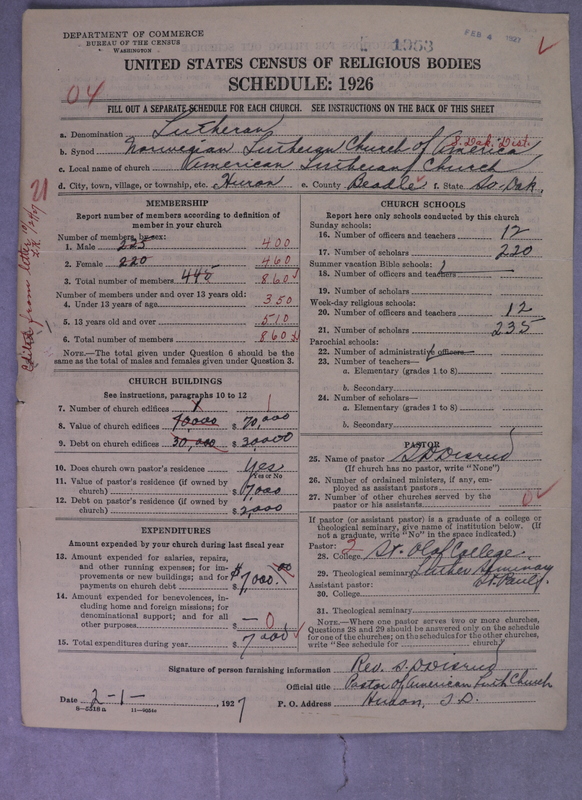 DEPARTMENT OF COMMERCE
BUREAU OF THE CENSUS
WASHINGTON
1953
FEB 4 1927
UNITED STATES CENSUS OF RELIGIOUS BODIES
SCHEDULE: 1926
04
FILL OUT A SEPARATE SCHEDULE FOR EACH CHURCH. SEE INSTRUCTIONS ON THE BACK OF THIS SHEET
a. Denomination Lutheran
b. Synod Norwegian Lutheran Church of America S. Dak. Dist.
c. Local name of church American Lutheran Church
d. City, town, village, or township, etc. Huron e. County Beadle f. State So. Dak.
21
MEMBERSHIP
Report number of members according to definition of member in your church
Number of members by sex:
1. Male 225 400
2. Female 220 460
3. Total number of members 445 860
Number of members under and over 13 years old:
4. Under 13 years of age 350
5. 13 years old and over 510
6. Total number of members 860
NOTE.—The total given under Question 6 should be the same as the total of males and females given under Question 3.
CHURCH BUILDINGS
See instructions, paragraphs 10 to 12
7. Number of church edifices 1
8. Value of church edifices 70000 $ 70,000
9. Debt on church edifices 30,000 $ 30000
10. Does church own pastor's residence Yes
(Yes or No)
11. Value of pastor's residence (if owned by church) $ 7,000
12. Debt on pastor's residence (if owned by church) $ 2,000
EXPENDITURES
Amount expended by your church during last fiscal year
13. Amount expended for salaries, repairs, and other running expenses; for improvements or new buildings; and for payments on church debt $ 7,000.00
14. Amount expended for benevolences, including home and foreign missions; for denominational support; and for all other purposes — 0
15. Total expenditures during year $ 7000
CHURCH SCHOOLS
Report here only schools conducted by this church
Sunday schools:
16. Number of officers and teachers 12
17. Number of scholars 220
Summer vacation Bible schools:
18. Number of officers and teachers
19. Number of scholars
Week-day religious schools:
20. Number of officers and teachers 12
21. Number of scholars 235
Parochial schools:
22. Number of administrative officers
23. Number of teachers—
a. Elementary (grades 1 to 8)
b. Secondary
24. Number of scholars—
a. Elementary (grades 1 to 8)
b. Secondary
PASTOR
25. Name of pastor
(If church has no pastor, write "None")
26. Number of ordained ministers, if any, employed as assistant pastors
27. Number of other churches served by the pastor or his assistants 0
If pastor (or assistant pastor) is a graduate of a college or theological seminary, give name of institution below. (If not a graduate, write "No" in the space indicated.)
Pastor: 2
28. College St. Olaf College
29. Theological seminary Luther Seminary St. Paul
Assistant pastor:
30. College
31. Theological seminary
NOTE.—Where one pastor serves two or more churches, Questions 28 and 29 should be answered only on the schedule for one of the churches; on the schedules for the other churches, write "See schedule for church"
Signature of person furnishing information Rev.
Official title Pastor of American Luth Church
Date 2-1- , 1927 P. O. Address Huron, S.D.